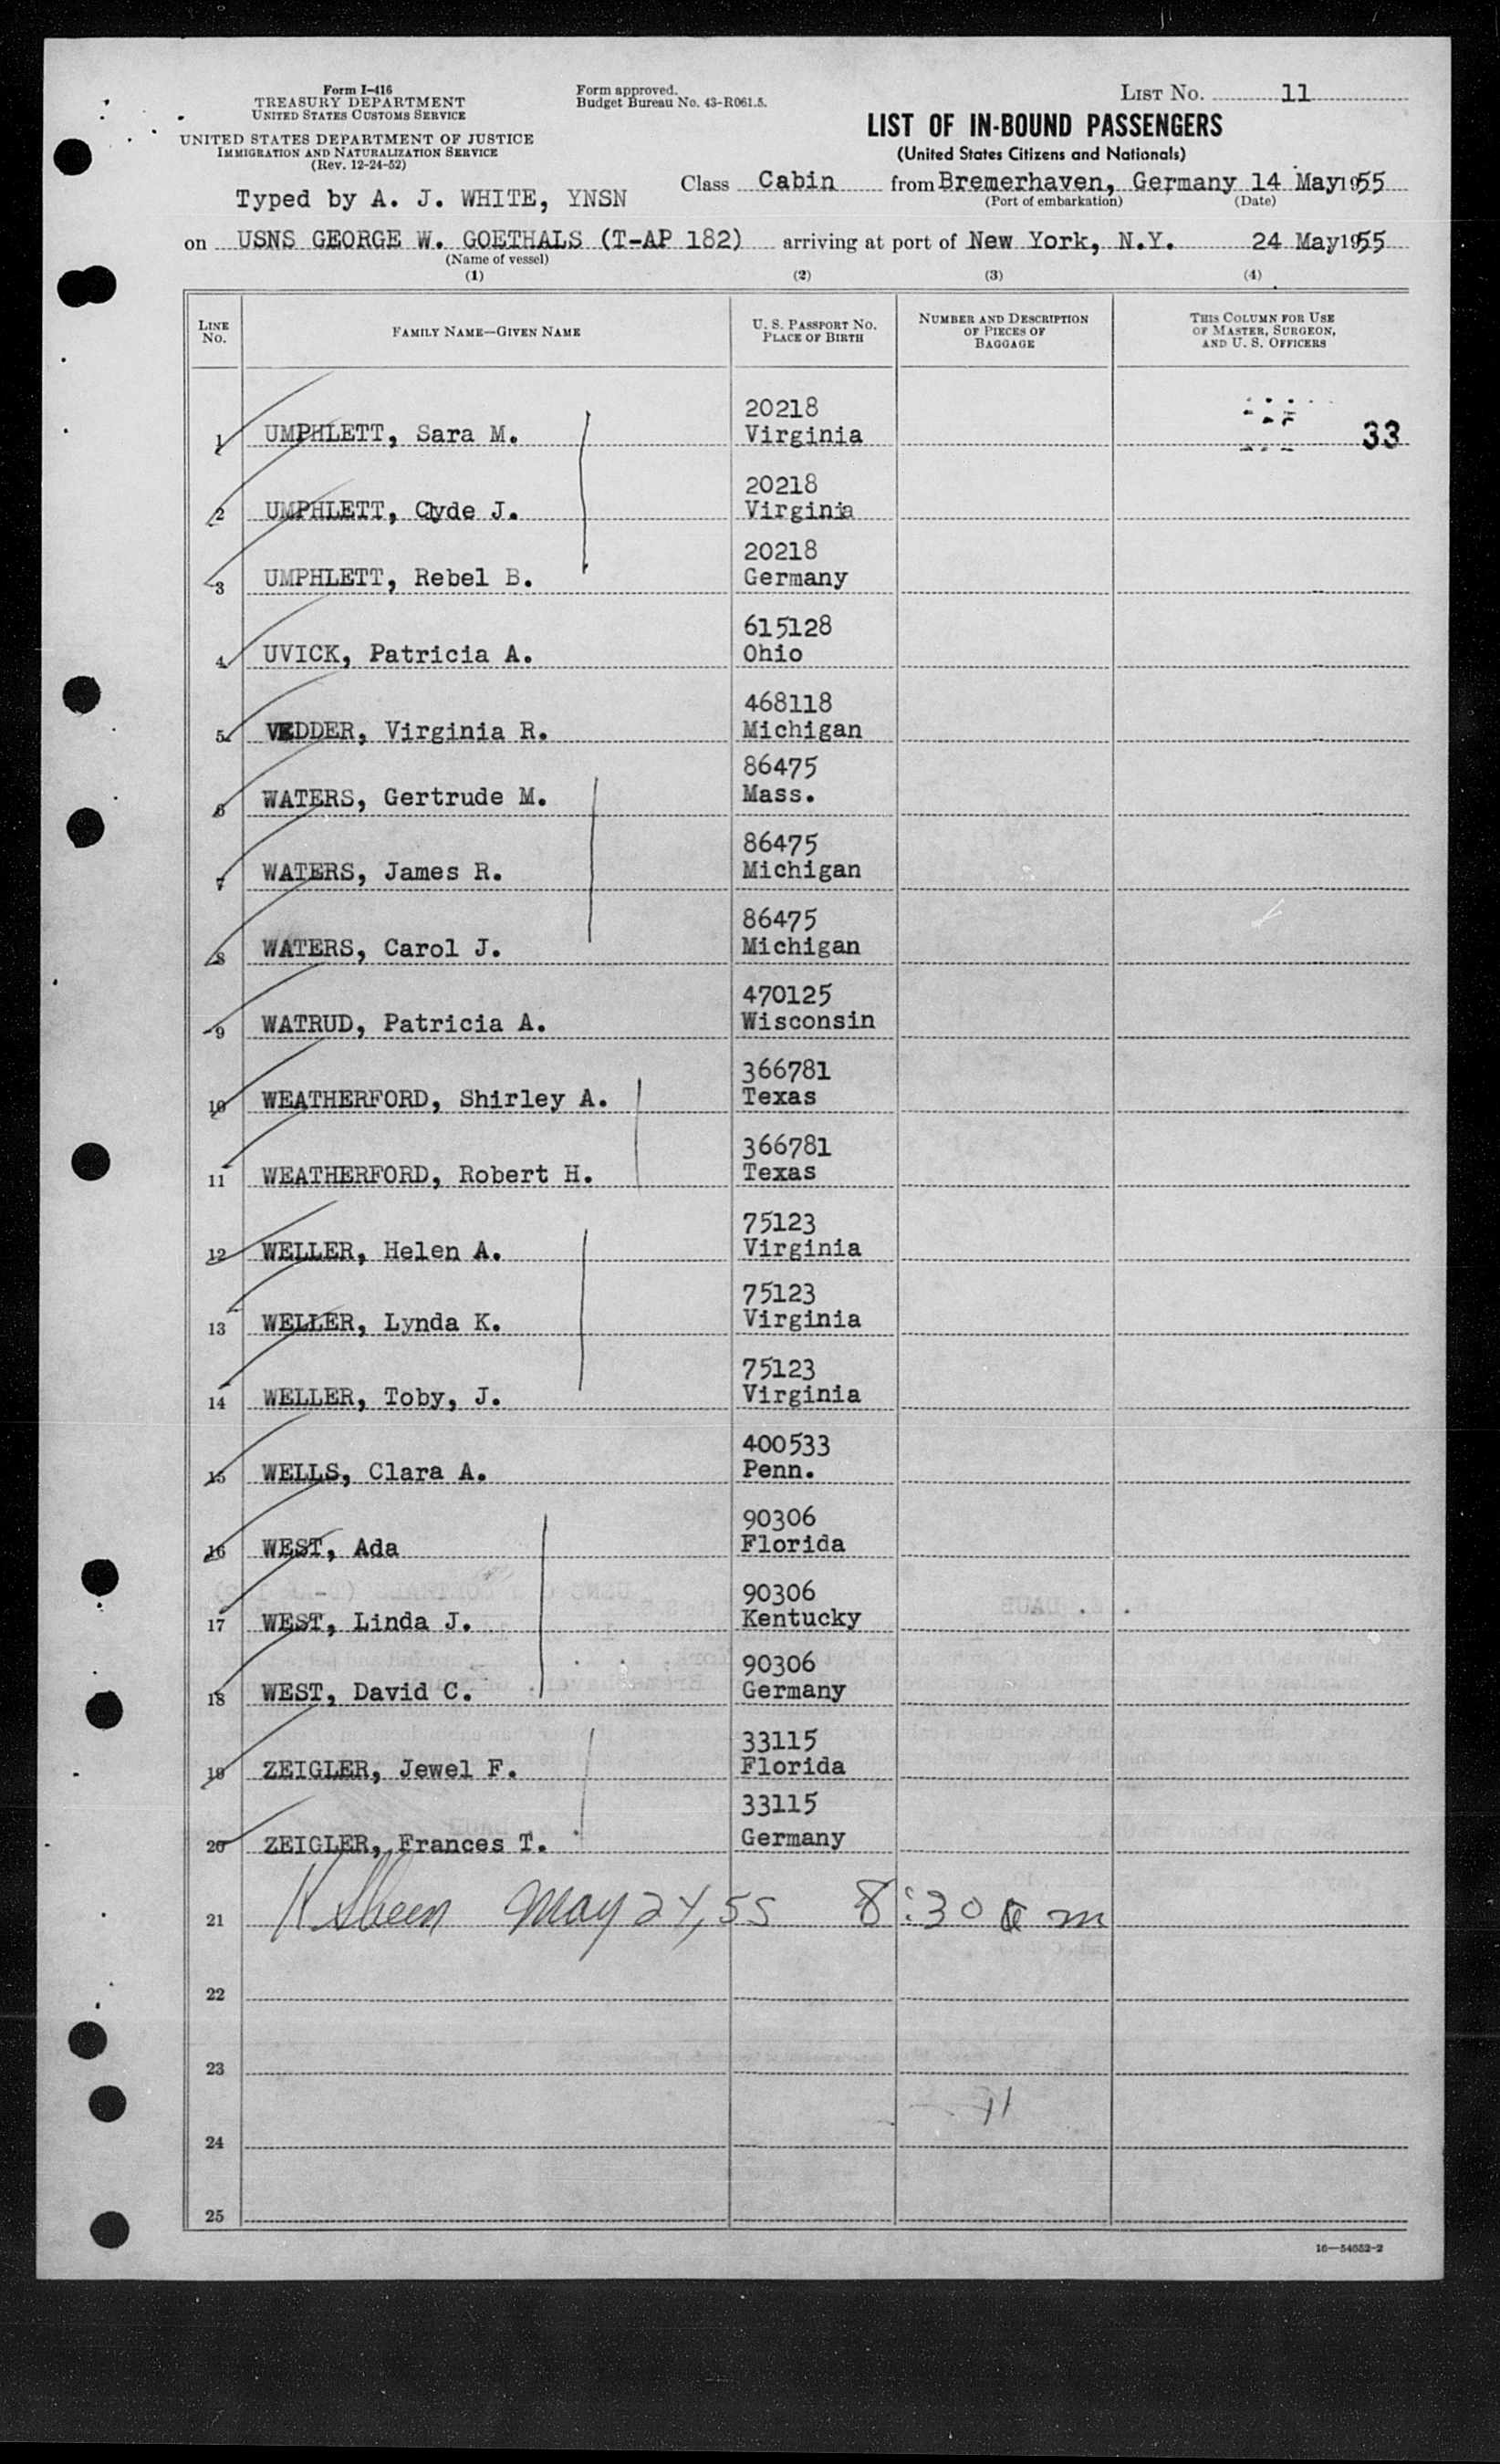 Form I-416
TREASURY DEPARTMENT
UNITED STATES CUSTOMS SERVICE
UNITED STATES DEPARTMENT OF JUSTICE
IMMIGRATION AND NATURALIZATION SERVICE
(Rev. 12-24-52)
Form approved.
Budget Bureau No. 43-R061.5.
LIST NO. 11
LIST OF IN-BOUND PASSENGERS
(United States Citizens and Nationals)
Typed by A. J. WHITE, YNSN
Class Cabin from Bremerhaven, Germany 14 May 1955
(Port of embarkation) (Date)
on USNS GEORGE W. GOETHALS (T-AP 182) arriving at port of New York, N.Y. 24 May 1955
(Name of vessel)
(1) (2) (3) (4)
LINE NO. FAMILY NAME—GIVEN NAME U. S. PASSPORT NO. PLACE OF BIRTH NUMBER AND DESCRIPTION OF PIECES OF BAGGAGE THIS COLUMN FOR USE OF MASTER, SURGEON, AND U. S. OFFICERS
20218
1 UMPHLETT, Sara M. Virginia 33
20218
2 UMPHLETT, Clyde J. Virginia
20218
3 UMPHLETT, Rebel B. Germany
615128
4 UVICK, Patricia A. Ohio
468118
5 VEDDER, Virginia R. Michigan
86475
6 WATERS, Gertrude M. Mass.
86475
7 WATERS, James R. Michigan
86475
8 WATERS, Carol J. Michigan
470125
9 WATRUD, Patricia A. Wisconsin
366781
10 WEATHERFORD, Shirley A. Texas
366781
11 WEATHERFORD, Robert H. Texas
75123
12 WELLER, Helen A. Virginia
75123
13 WELLER, Lynda K. Virginia
75123
14 WELLER, Toby, J. Virginia
400533
15 WELLS, Clara A. Penn.
90306
16 WEST, Ada Florida
90306
17 WEST, Linda J. Kentucky
90306
18 WEST, David C. Germany
33115
19 ZEIGLER, Jewel F. Florida
33115
20 ZEIGLER, Frances T. Germany
21 May 24, 55 8:30 a m
22
23
24
25
16—54652-2